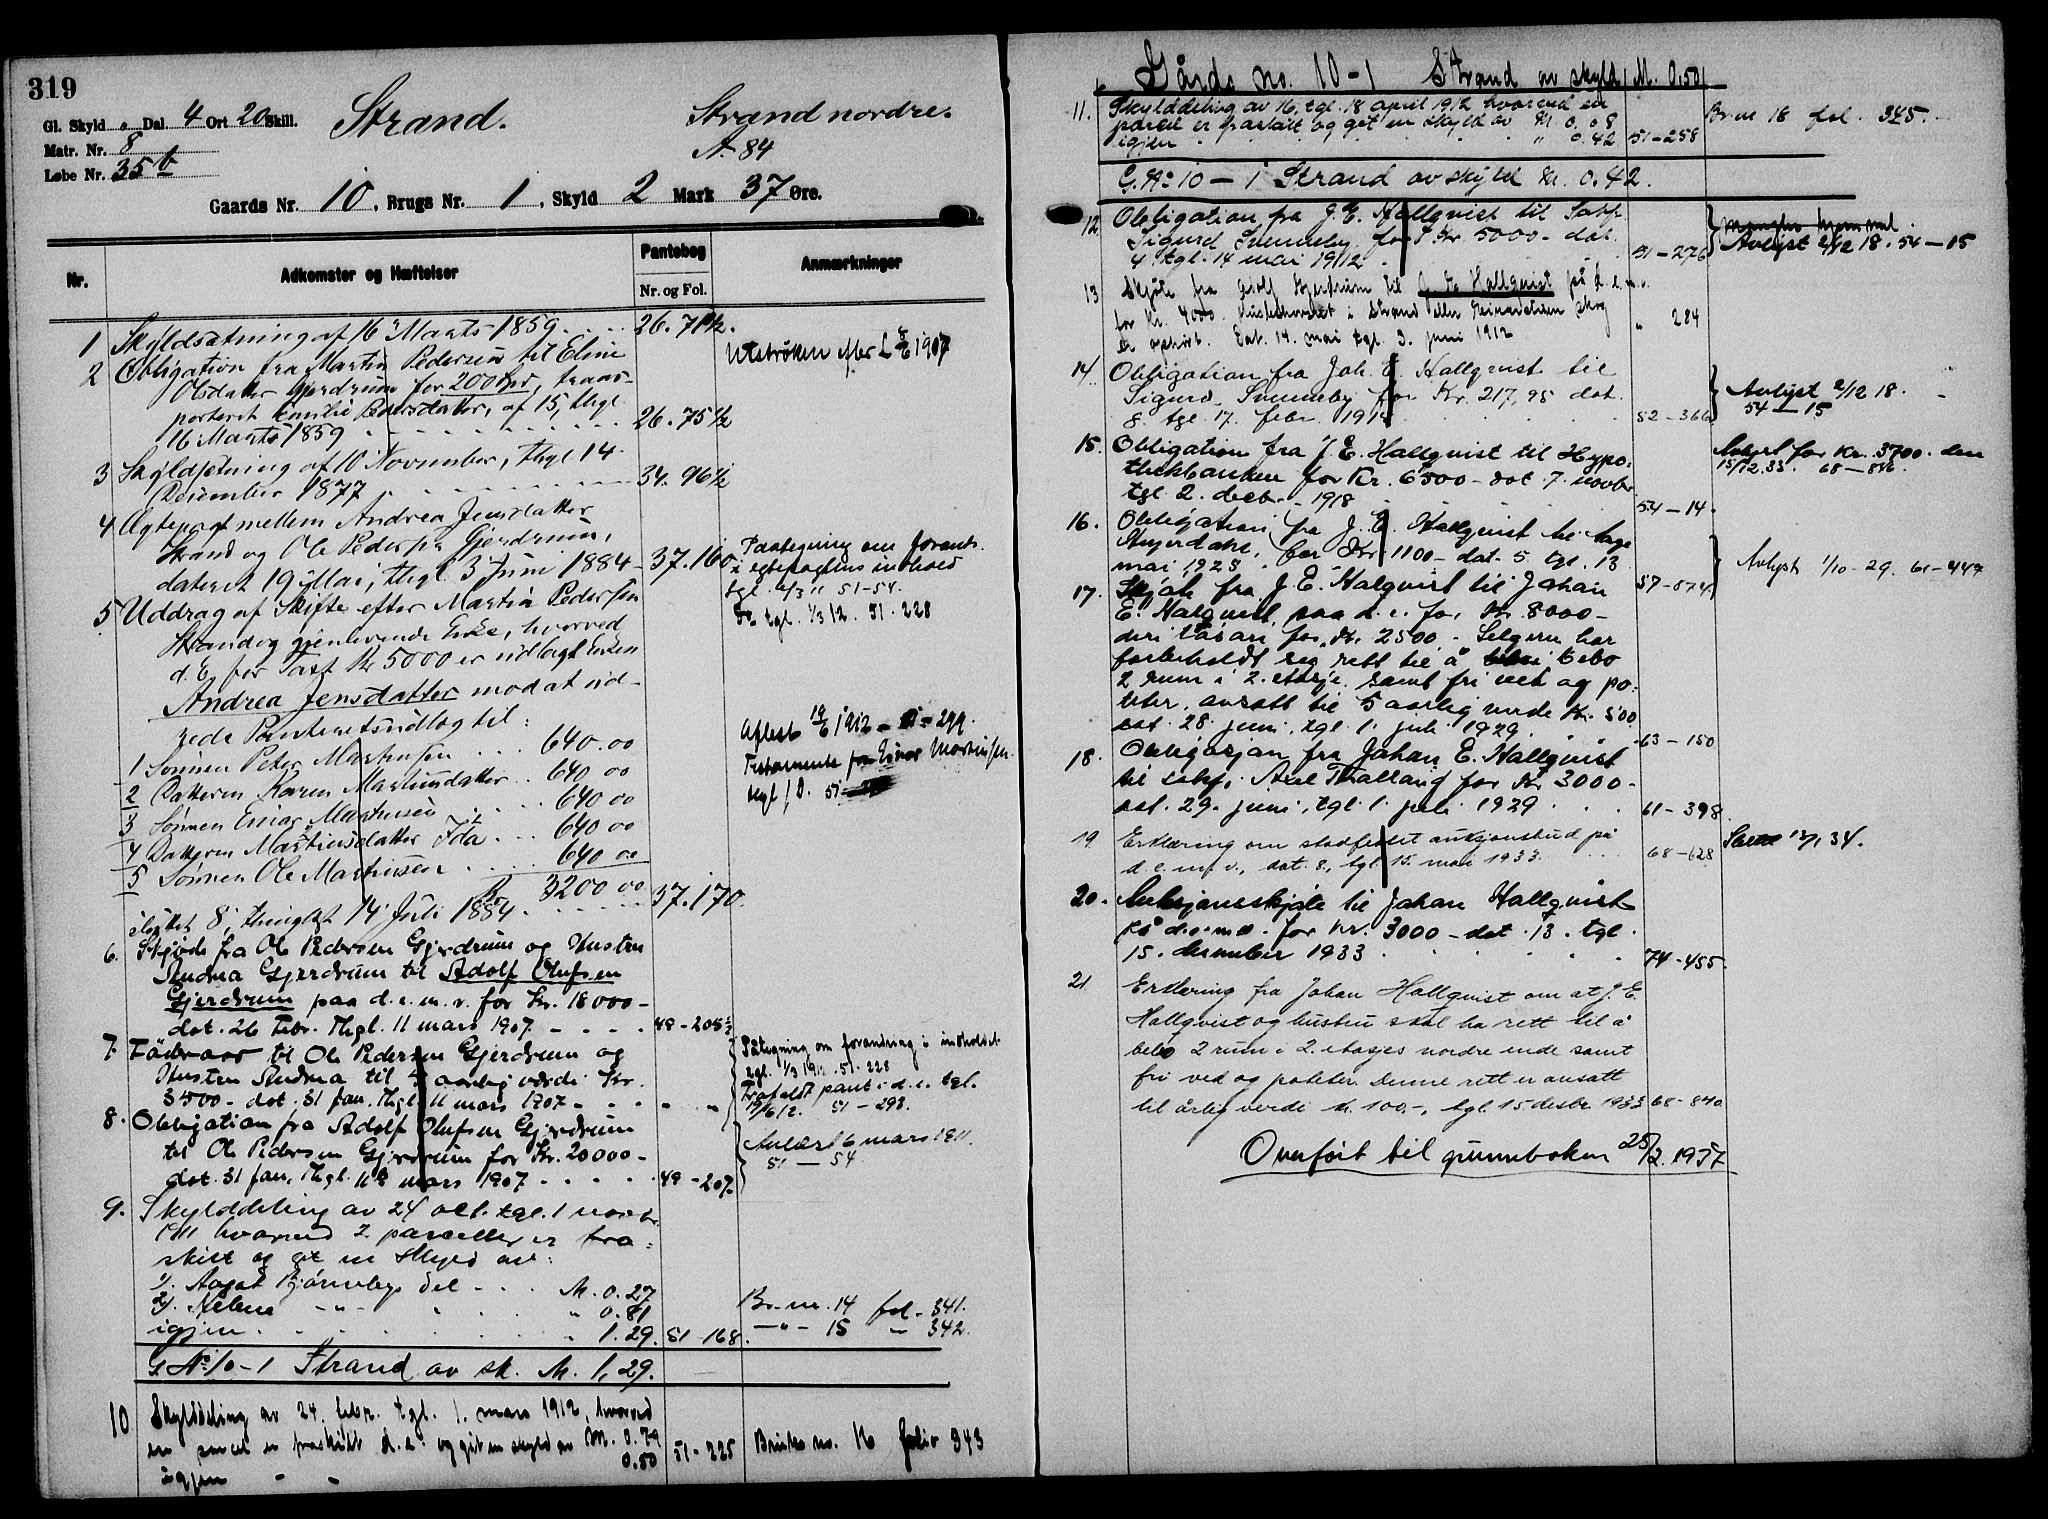 319
Gl. Skyld " Dal. 4 Ort 20 Skill.
Strand.
Strand nordre.
Matr. Nr. 8
A. 84
Løbe Nr. 35 b
Gaards Nr. 10, Brugs Nr. 1, Skyld 2 Mark 37 Øre.
Nr.
Adkomster og Hæftelser
Pantebog
Nr. og Fol.
Anmærkninger
1 Skyldsætning af 16 Marts 1859. 26. 71½.
2 Obligation fra Martin Pedersen til Eline
Olsdatter Gjerdrum for 200 Spd, trans-
porteret Emilie Pedersdatter, af 15, thgl
16 Marts 1859 26. 75½
Utstrøken efter L 1907
3 Skyldsetning af 10 November, thgl 14
December 1877 34. 96½
4 Ægtepagt mellem Andrea Jensdatter
Strand og Ole Pedersen Gjerdrum,
dateret 19 Mai, thgl. 3 Juni 1884 37. 160
Paategning om forandr.
i egtepagtens indhold
tgl. 6/3 11 51-54.
Do tgl. 1/3 12. 51. 228
5 Uddrag af Skifte efter Martin Pedersen
Strand og gjenlevende Enke, hvorved
d. E. for Taxt Kr 5000 er udlagt Enken
Andrea Jensdatter mod at ud-
rede Panteretsudlæg til:
1 Sønnen Peter Martinsen 640.00
2 Datteren Karen Martinsdatter 640 00
3 Sønnen Einar Martinsen 640 00
4 Datteren Martinsdatter Ida 640 00
5 Sønnen Ole Martinsen 640 00
Kr 3200 00
sluttet 8, thinglyst 14 Juli 1884. 37. 170.
Aflest 19/6 1912 - 51 - 299.
Testamente fra Einar Martinsen
tkgl f D. 51-
6. Skjøde fra Ole Pedersen Gjerdrum og Hustru
Andrea Gjerdrum til Adolf Olufsen
Gjerdrum paa d. e. m. v. for Kr. 18000-
dat. 26 Febr. Thgl. 11 mars 1907. 49-205½
7. Føderaad til Ole Pedersen Gjerdrum og
Hustru Andrea til 5 aarlig værdi Kr.
3500- dat. 31 jan. Thgl. 11 mars 1907 " "
Påtegning om forandring i indholdet
tgl. 1/3 1912. 51. 228
Frafaldt pant i d. e. tgl.
19/6 12. 51-298.
8. Obligation fra Adolf Olufsen Gjerdrum
til Ole Pedersen Gjerdrum for Kr. 20000-
dat. 31 jan, Thgl. 11 mars 1907 49-207.
Avlæst 6 mars 1911.
51 - 54
9. Skylddeling av 24 okt. tgl. 1 novbr.
1911 hvorved 2 parceller er fra-
skilt og git en skyld av:
1/. Aagot Bjørnebys del M. 0.27
2/. Helene -"- " 0.81
igjen " 1.29. 51-168.
Br. nr. 14 fol. 341.
-"- 15 " 342.
G No 10-1 Strand av sk. M. 1,29.
10 Skylddeling av 24. febr. tgl. 1. mars 1912, hvorved
en parcel er fraskilt d. e. og git en skyld av M. 0.79
igjen " " 0.50 51-225
Bruks no. 16 folio 343
Gårds no. 10-1 Strand av skyld M. 0,50
11. Skylddeling av 16, tgl. 18 april 1912 hvorved en
parcel er fraskilt og git en skyld av M 0.08
igjen " 0.42 51-258
Br nr 18 fol. 345.
G. No 10-1 Strand av skyld M. 0.42.
12 Obligation fra J. E. Hallqvist til Sakf.
Sigurd Svenneby for Kr 5000- dat.
4 tgl. 14 mai 1912 51-276
mangler hjemmel.
Avlyst 2/12 18. 54-15
13 Skjøte fra Adolf Gjerdrum til J. E. Hallqvist på d. e. m. v.
for Kr. 4000. Husbehovsret i Strand eller skog
er ophört. Dat. 14. mai tgl. 3. juni 1912 " 284
14. Obligation fra Joh. E. Hallqvist til
Sigurd Svenneby for Kr. 217,95 dat.
8. tgl 17. febr. 1915 52-366
Avlyst 2/12 18.
54-15
15. Obligation fra J. E. Hallqvist til Hypo-
thekbanken for Kr. 6500- dat. 7. novbr
tgl 2. decbr. 1918 54-14.
Avlyst for Kr. 3700. den
15/12. 33. 68-846.
16. Obligation fra J. E. Hallqvist til Aage
Meyerdahl, for Kr 1100- dat. 5 tgl. 13
mai 1923 57-574
Avlyst 1/10-29. 61-447
17. Skjøte fra J. E. Halqvist til Johan
E. Halqvist paa d. e. for Kr. 8000-
deri løsøre for Kr 2500- Selgern har
forbeholdt seg rett til å bebo
2 rum i 2. etasje samt fri ved og po-
teter, ansatt til 5 aarlig verde Kr. 500
dat. 28 juni, tgl 1. juli 1929. 63-150
18. Obligasjon fra Johan E. Hallqvist
til sakf. Axel Thallaug for Kr 3000-
dat. 29. juni, tgl. 1. juli 1929 61-398
19 Erklæring om stadfestet auksjonsbud på
d. e. m. v., dat. 8., tgl 15. mai 1933. 68-628
Slettet 13/1 34.
20. Auksjonsskjøte til Johan Hallqvist
På d. e. m. v. for Kr. 3000- dat. 13. tgl.
15. desember 1933 74-455.
21 Erklæring fra Johan Hallqvist om at J. E.
Hallqvist og hustru skal ha rett til å
bebo 2 rum i 2. etasjes nordre ende samt
fri ved og poteter. Denne rett er ansatt
til årlig verdi kr. 100.-, tgl. 15 desbr. 1933 68-840
Overført til grunnboken 25/2. 1957